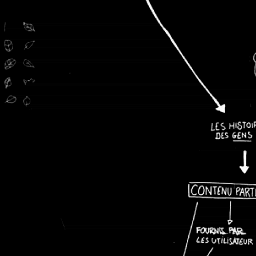 LES HISTOIR
DES GENS
CONTENU PARTI
FOURNIS PAR
LES UTILISATEUR